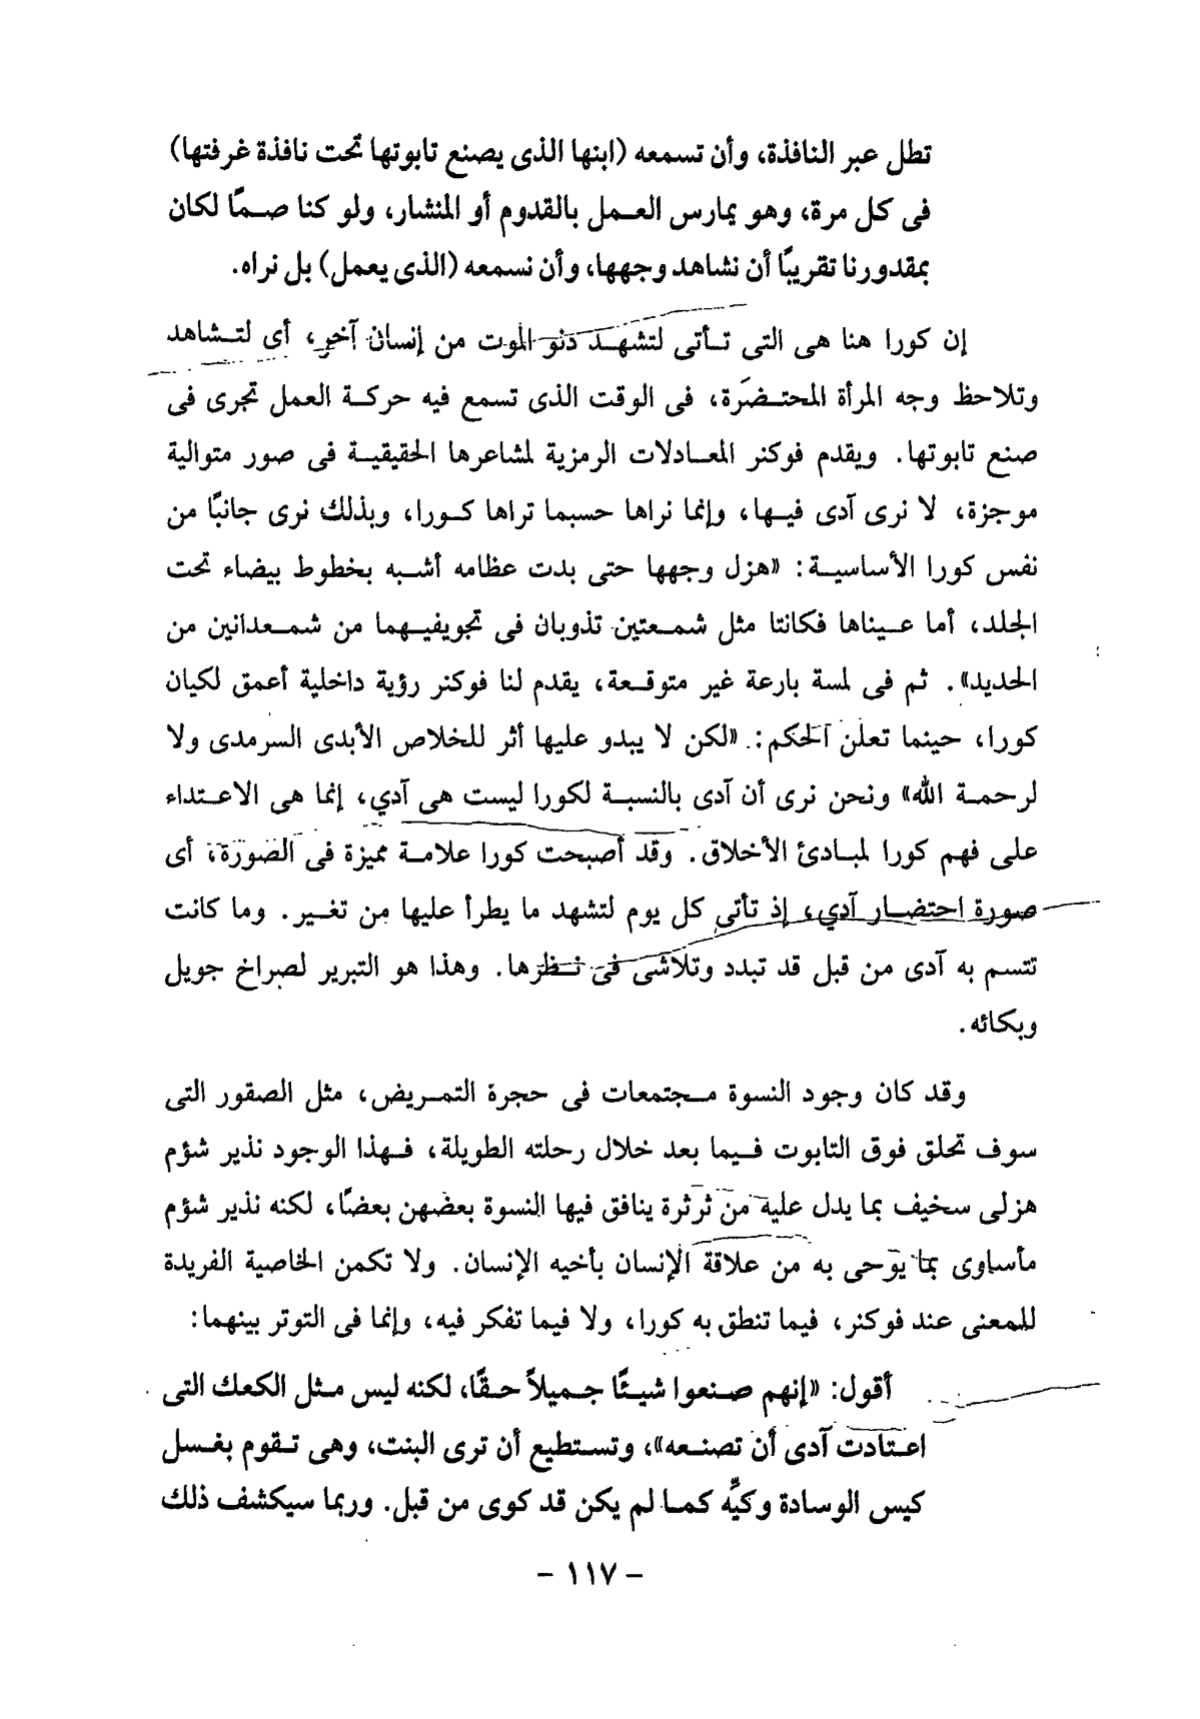 تطل عبر النافذة، وأن تسمعه (ابنها الذى يصنع تابوتها تحت نافذة غرفتها)
فى كل مرة، وهو يمارس العمل بالقدوم أو المنشار، ولو كنا صمًا لكان
بمقدورنا تقريبًا أن نشاهد وجهها، وأن نسمعه (الذى يعمل) بل نراه.
إن كورا هنا هى التى تأتى لتشهد دنو الموت من إنسان آخر، أى لتشاهد
وتلاحظ وجه المرأة المحتضَرة، فى الوقت الذى تسمع فيه حركة العمل تجرى فى
صنع تابوتها. ويقدم فوكنر المعادلات الرمزية لمشاعرها الحقيقية فى صور متوالية
موجزة، لا نرى آدى فيها، وإنما نراها حسبما تراها كورا، وبذلك نرى جانبًا من
نفس كورا الأساسية: «هزل وجهها حتى بدت عظامه أشبه بخطوط بيضاء تحت
الجلد، أما عيناها فكانتا مثل شمعتين تذوبان فى تجويفيهما من شمعدانين من
الحديد». ثم فى لمسة بارعة غير متوقعة، يقدم لنا فوكنر رؤية داخلية أعمق لكيان
كورا، حينما تعلن الحكم: «لكن لا يبدو عليها أثر للخلاص الأبدى السرمدى ولا
لرحمة الله» ونحن نرى أن آدى بالنسبة لكورا ليست هى آدي، إنما هى الاعتداء
على فهم كورا لمبادئ الأخلاق. وقد أصبحت كورا علامة مميزة فى الصورة، أى
صورة احتضار آدي، إذ تأتى كل يوم لتشهد ما يطرأ عليها من تغير. وما كانت
تتسم به آدى من قبل قد تبدد وتلاشى فى نظرها. وهذا هو التبرير لصراخ جويل
وبكائه.
وقد كان وجود النسوة مجتمعات فى حجرة التمريض، مثل الصقور التى
سوف تحلق فوق التابوت فيما بعد خلال رحلته الطويلة، فهذا الوجود نذير شؤم
هزلى سخيف بما يدل عليه من ثرثرة ينافق فيها النسوة بعضهن بعضًا، لكنه نذير شؤم
مأساوى بما يوحى به من علاقة الإنسان بأخيه الإنسان. ولا تكمن الخاصية الفريدة
للمعنى عند فوكنر، فيما تنطق به كورا، ولا فيما تفكر فيه، وإنما فى التوتر بينهما:
أقول: «إنهم صنعوا شيئًا جميلاً حقًا، لكنه ليس مثل الكعك التى
اعتادت آدى أن تصنعه»، وتستطيع أن ترى البنت، وهى تقوم بغسل
كيس الوسادة وكيِّه كما لم يكن قد كوى من قبل. وربما سيكشف ذلك
- ١١٧ -